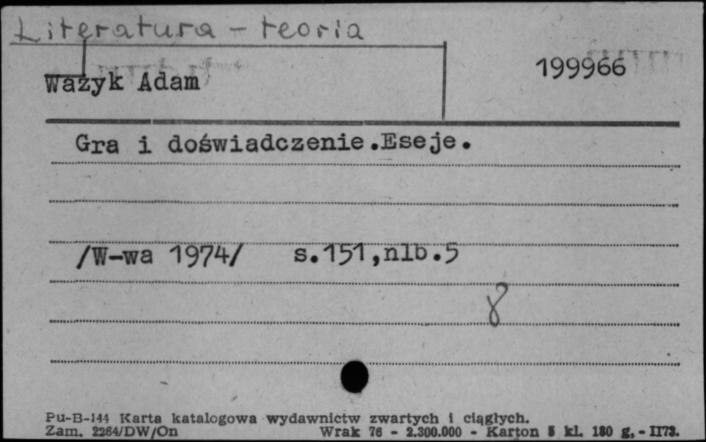 Literatura - teoria
Ważyk Adam
199966
Gra i doświadczenie.Eseje.
/W-wa 1974/ s.151,nlb.5
8
Pu-B-144 Karta katalogowa wydawnictw zwartych i ciągłych.
Zam. 2264/DW/On Wrak 76 - 2.300.000 - Karton 5 kl. 180 g. - II73.